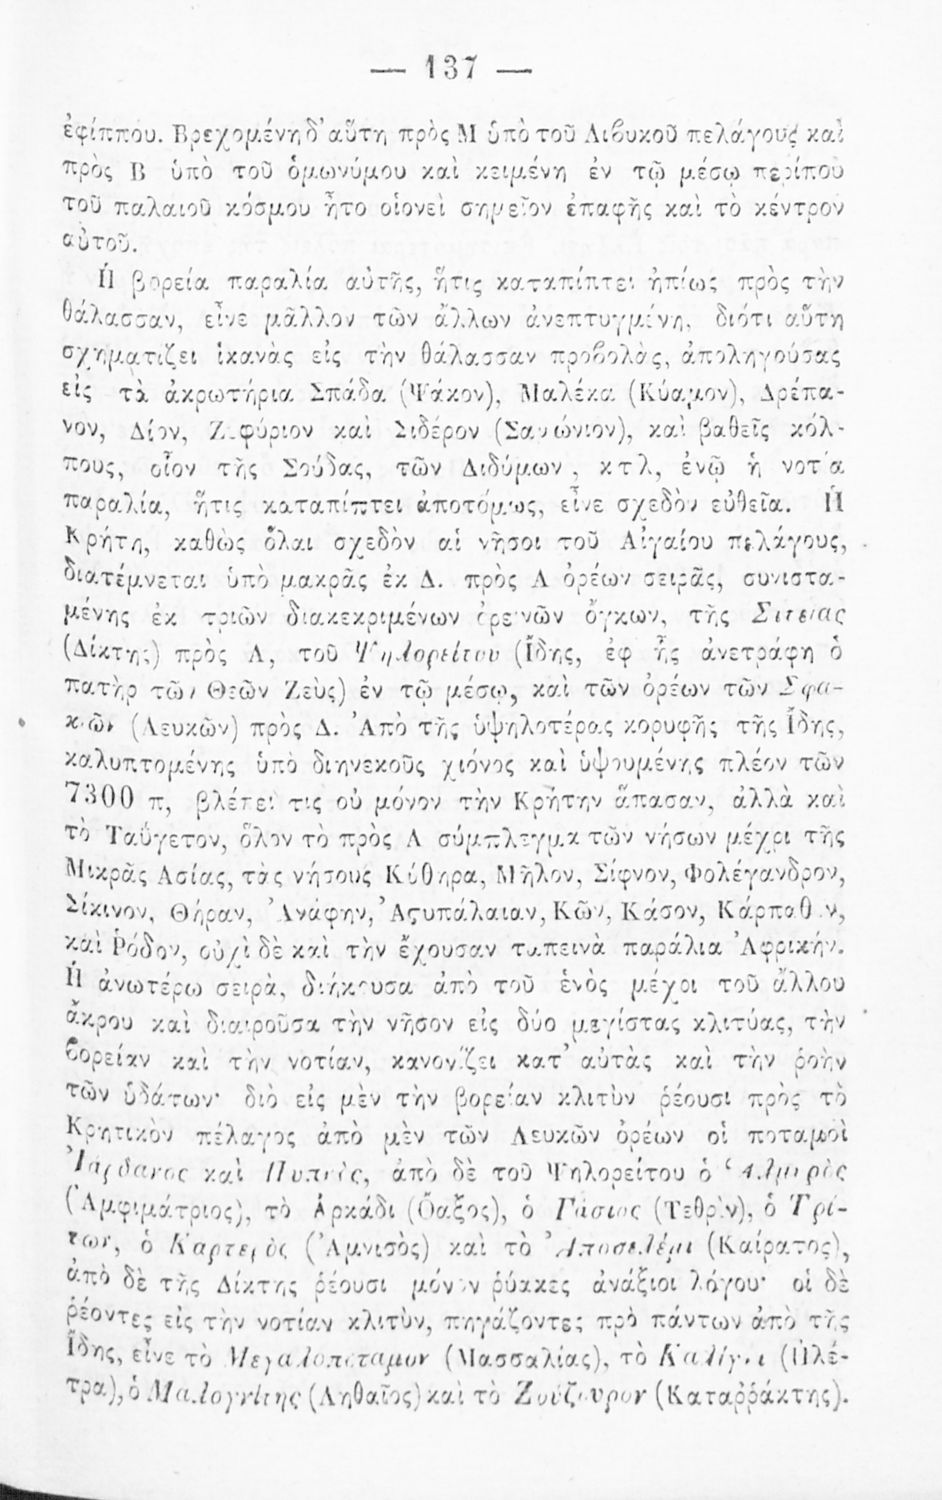 — 137 —
ἐφίππου. Βρεχομένη δ’ αὕτη πρὸς Μ ὑπὸ τοῦ Λιβυκοῦ πελάγους καὶ
πρὸς Β ὑπὸ τοῦ ὁμωνύμου καὶ κειμένη ἐν τῷ μέσῳ περίπου
τοῦ παλαιοῦ κόσμου ἦτο οἱονεὶ σημεῖον ἐπαφῆς καὶ τὸ κέντρον
αὐτοῦ.
Ἡ βορεία παραλία αὐτῆς, ἥτις καταπίπτει ἠπίως πρὸς τὴν
θάλασσαν, εἶνε μᾶλλον τῶν ἄλλων ἀνεπτυγμένη, διότι αὕτη
σχηματίζει ἱκανὰς εἰς τὴν θάλασσαν προβολὰς, ἀποληγούσας
εἰς τὰ ἀκρωτήρια Σπάδα (Ψάκον), Μαλέκα (Κύαμον), Δρέπα-
νον, Δίον, Ζεφύριον καὶ Σιδέρον (Σαμώνιον), καὶ βαθεῖς κόλ-
πους, οἷον τῆς Σούδας, τῶν Διδύμων, κτλ, ἐνῷ ἡ νοτία
παραλία, ἥτις καταπίπτει ἀποτόμως, εἶνε σχεδὸν εὐθεῖα. Ἡ
Κρήτη, καθὼς ὅλαι σχεδὸν αἱ νῆσοι τοῦ Αἰγαίου πελάγους,
διατέμνεται ὑπὸ μακρᾶς ἐκ Δ. πρὸς Α ὀρέων σειρᾶς, συνιστα-
μένης ἐκ τριῶν διακεκριμένων ὀρεινῶν ὄγκων, τῆς Σιτείας
(Δίκτης) πρὸς Α, τοῦ Ψηλορείτου (Ἴδης, ἐφ ἧς ἀνετράφη ὁ
πατὴρ τῶν Θεῶν Ζεὺς) ἐν τῷ μέσῳ, καὶ τῶν ὀρέων τῶν Σφα-
κιῶν (Λευκῶν) πρὸς Δ. Ἀπὸ τῆς ὑψηλοτέρας κορυφῆς τῆς Ἴδης,
καλυπτομένης ὑπὸ διηνεκοῦς χιόνος καὶ ὑψουμένης πλέον τῶν
7300 π, βλέπει τις οὐ μόνον τὴν Κρήτην ἅπασαν, ἀλλὰ καὶ
τὸ Ταΰγετον, ὅλον τὸ πρὸς Α σύμπλεγμα τῶν νήσων μέχρι τῆς
Μικρᾶς Ασίας, τὰς νήσους Κύθηρα, Μῆλον, Σίφνον, Φολέγανδρον,
Σίκινον, Θήραν, Ἀνάφην, Ἀςυπάλαιαν, Κῶν, Κάσον, Κάρπαθον,
καὶ Ῥόδον, οὐχὶ δὲ καὶ τὴν ἔχουσαν ταπεινὰ παράλια Ἀφρικήν.
Ἡ ἀνωτέρω σειρὰ, διήκουσα ἀπὸ τοῦ ἑνὸς μέχρι τοῦ ἄλλου
ἄκρου καὶ διαιροῦσα τὴν νῆσον εἰς δύο μεγίστας κλιτύας, τὴν
βορείαν καὶ τὴν νοτίαν, κανονίζει κατ’ αὐτὰς καὶ τὴν ῥοὴν
τῶν ὑδάτων· διὸ εἰς μὲν τὴν βορείαν κλιτὺν ῥέουσι πρὸς τὸ
Κρητικὸν πέλαγος ἀπὸ μὲν τῶν Λευκῶν ὀρέων οἱ ποταμοὶ
Ἰάρδανος καὶ Πυκνὸς, ἀπὸ δὲ τοῦ Ψηλορείτου ὁ Ἁλμυρὸς
(Ἀμφιμάτριος), τὸ Ἀρκάδι (Ὄαξος), ὁ Γάσιος (Τεθρὶν), ὁ Τρί-
των, ὁ Καρτερὸς (Ἀμνισὸς) καὶ τὸ Ἀποσελέμι (Καίρατος),
ἀπὸ δὲ τῆς Δίκτης ῥέουσι μόνον ῥύακες ἀνάξιοι λόγου· οἱ δὲ
ῥέοντες εἰς τὴν νοτίαν κλιτὺν, πηγάζοντες πρὸ πάντων ἀπὸ τῆς
Ἴδης, εἶνε τὸ Μεγαλοπόταμον (Μασσαλίας), τὸ (Πλέ-
τρα), ὁ Μαλογνίτης (Ληθαῖος) καὶ τὸ (Καταῤῥάκτης).